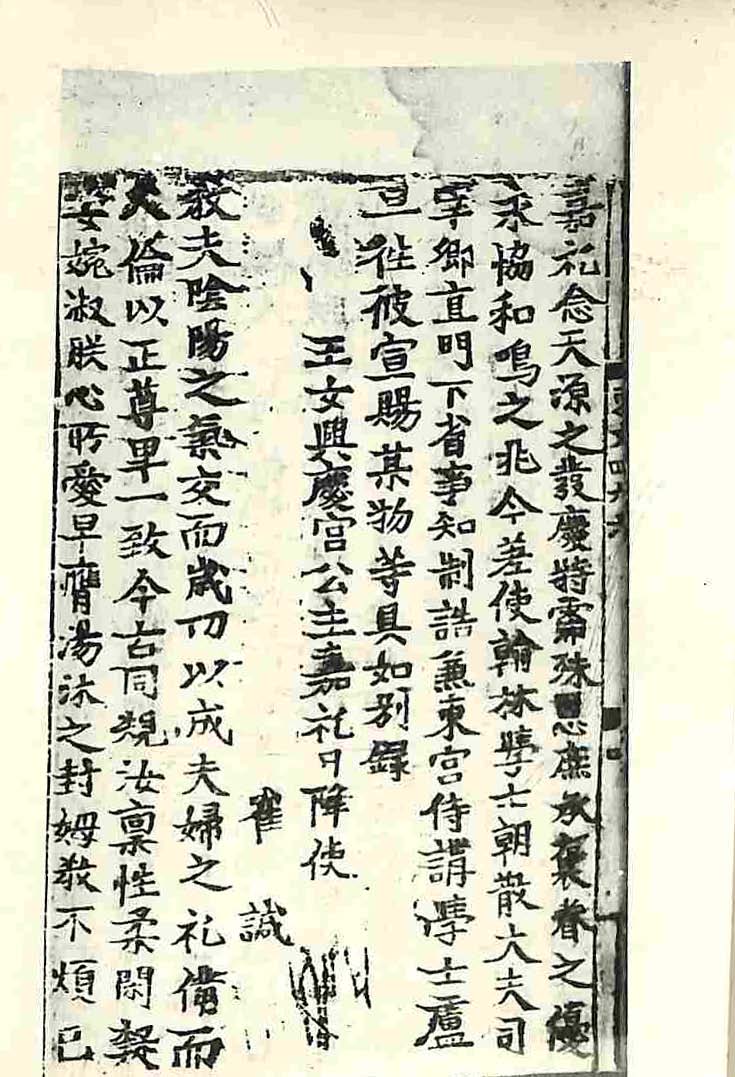 嘉礼念天源之發慶特霈殊恩庶承褒眷之優
永協和鳴之兆今差使翰林學士朝散大夫司
宰卿直門下省事知制誥兼東宮侍講學士盧
旦徃彼宣賜某物等具如别録
王女興慶宮公主嘉礼日降使
崔諴
教夫陰陽之氣交而歲功以成夫婦之礼備而
大倫以正尊卑一致今古同䂓汝禀性柔閑
女婉淑朕心所愛早膺湯沐之封姆教不煩已